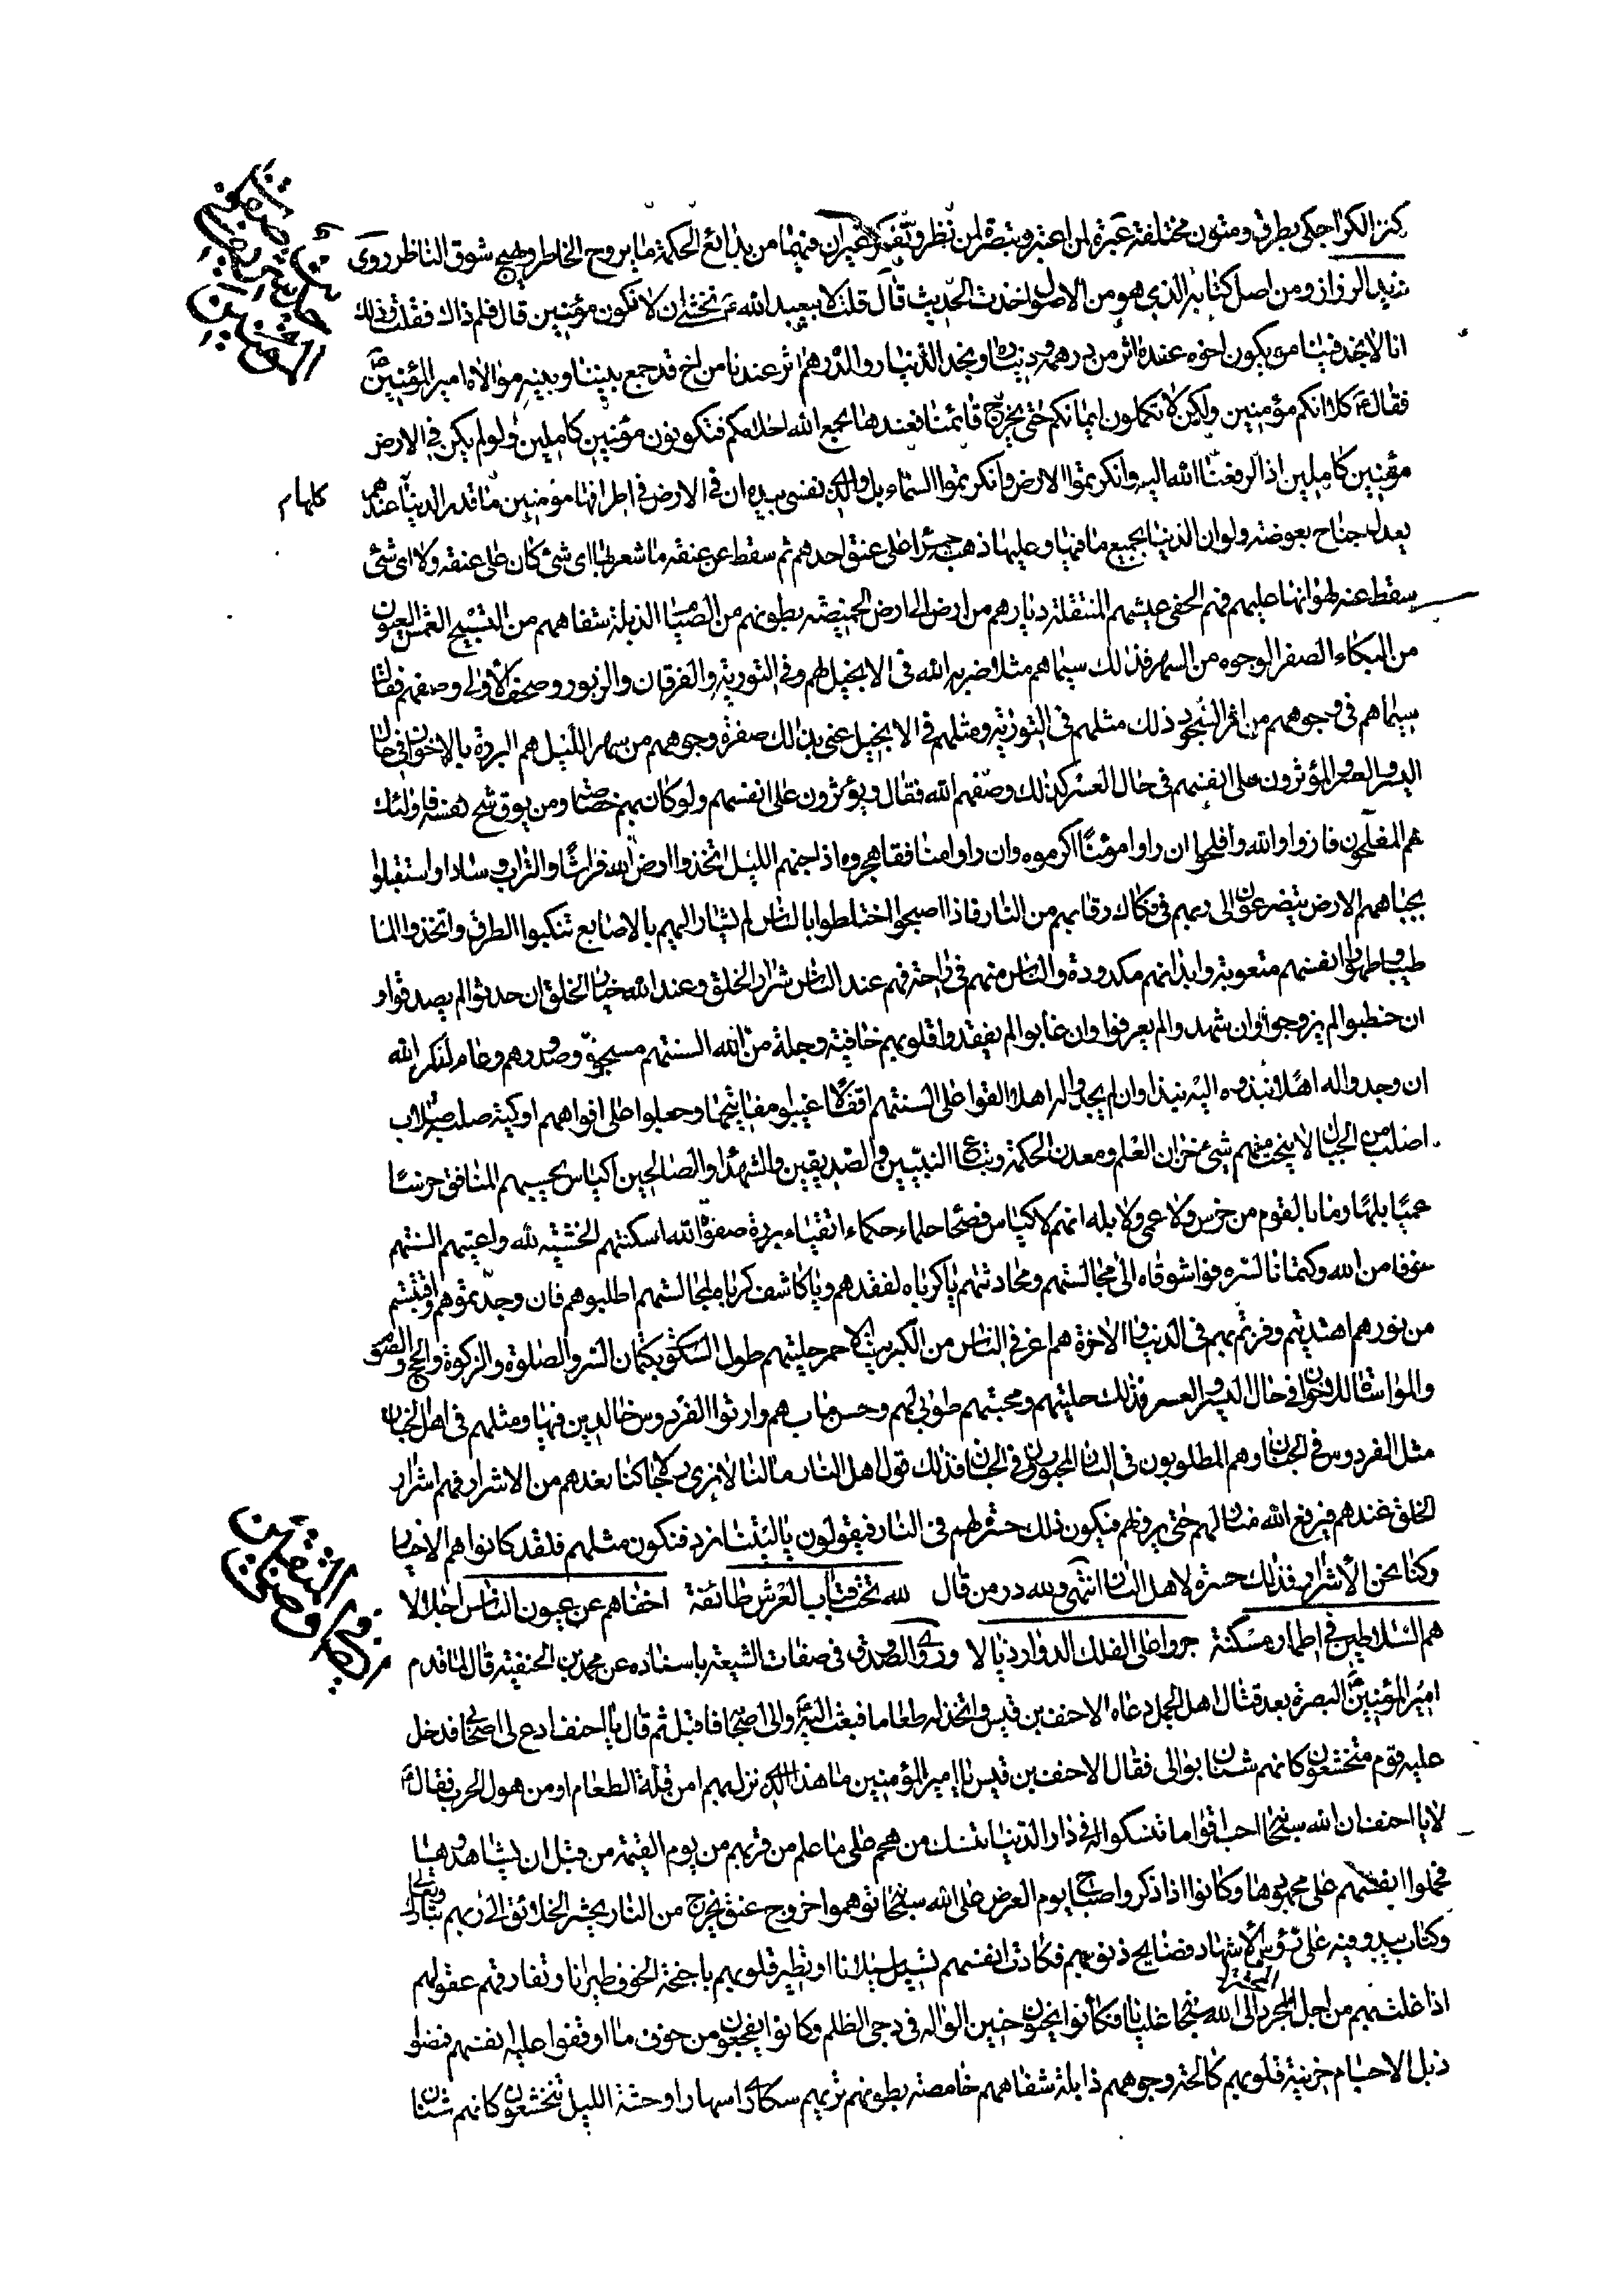 كنز الكراجكي بطرق ومتون مختلفة عبرة لمن اعتبر وتبصرة لمن نظر وتفكر غير ان فيهما من بدائع الحكمة ما يروح الخاطر ويهيج شوق الناظر روى
زيد الزراد ومن اصل كتابه الذي هو من الاصول اخذت الحديث قال قلت لابيعبد الله ع نخشى ان لا نكون مؤمنين قال فلم ذاك فقلت وذلك
انا لا نجد فينا من يكون اخوه عنده اثر من درهمه وديناره ونجد الدينار والدرهم اثر عندنا من اخ قد جمع بيننا وبينه موالاة امير المؤمنين ص
فقال ع كلا انكم مؤمنين ولكن لا تكملون ايمانكم حتى يخرج قائمنا فعندها يجمع الله احلامكم فتكونون مؤمنين كاملين ولو لم يكن في الارض
مؤمنين كاملين اذا لرفعنا الله اليه وانكرتموا الارض وانكرتموا السماء بل والذي نفسي بيده ان في الارض في اطرافها مؤمنين ما قدر الدنيا عندهم
كلها م
يعدل جناح بعوضة ولو ان الدنيا بجميع ما فيها وعليها ذهبة حمراء على عنق احدهم ثم سقط عن عنقه ما شعر بها اي شئ كان على عنقه ولا اي شئ
سقط عنه لهوانها عليهم فهم الحفي عيشهم المنتقلة ديارهم من ارض الى ارض الخميصة بطونهم من الصيام الذبلة شفاههم من التسبيح العمش العيون
من البكاء الصفر الوجوه من السهر فذلك سيماهم مثلا ضربه الله في الانجيل لهم وفي التورية والفرقان والزبور وصحف الاولى وصفهم فقال
سيماهم في وجوههم من اثر السجود ذلك مثلهم في التورية ومثلهم في الانجيل عنى بذلك صفرة وجوههم من سهر الليل هم البررة بالاخوان في حال
اليسر والعسر المؤثرون على انفسهم في حال العسر كذلك وصفهم الله فقال ويؤثرون على انفسهم ولو كان بهم خصاصة ومن يوق شح نفسه فاولئك
هم المفلحون فازوا والله وافلحوا ان راوا مؤمنا اكرموه وان راوا منافقا هجروه اذا جنهم الليل اتخذوا ارض الله فراشا والتراب وسادا واستقبلوا
بجباههم الارض يتضرعون الى ربهم في فكاك رقابهم من النار فاذا اصبحوا اختلطوا بالناس لم يشار اليهم بالاصابع تنكبوا الطرق واتخذوا الماء
طيبا وطهورا انفسهم متعوبة وابدانهم مكدودة والناس منهم في راحة فهم عند الناس شرار الخلق وعند الله خيار الخلق ان حدثوا لم يصدقوا و
ان خطبوا لم يزوجوا وان شهدوا لم يعرفوا وان غابوا لم يفقدوا قلوبهم خائفة وجلة من الله السنتهم مسجونة وصدورهم وعاء لذكر الله
ان وجدوا له اهلا نبذوه اليه نبذا وان لم يجدوا له اهلا القوا على السنتهم اقفالا غيبوا مفاتيحها وجعلوا على افواههم اوكية صلب صلاب
اصلب من الجبال لا ينحت منهم شئ خزان العلم ومعدن الحكمة وتباع النبيين والصديقين والشهداء والصالحين اكياس يحسبهم المنافق خرسا
عميا بلها وما بالقوم من خرس ولا عمى ولا بله انهم لاكياس فصحاء حلماء حكماء اتقياء بررة صفوة الله اسكنتهم الخشية لله واعيتهم السنتهم
خوفا من الله وكتمانا لسره فواشوقاه الى مجالستهم ومحادثتهم يا كرباه لفقدهم ويا كاشف كرباه لمجالستهم اطلبوهم فان وجدتموهم واقتبستم
من نورهم اهتديتم وفزتم بهم في الدنيا والاخرة هم اعز في الناس من الكبريت الاحمر حليتهم طول السكوت بكتمان السر والصلوة والزكوة والحج والصوم
والمواساة للاخوان في حال اليسر والعسر فذلك حليتهم ومحبتهم طوبى لهم وحسن ماب هم وارثوا الفردوس خالدين فيها ومثلهم في اهل الجنان
مثل الفردوس في الجنان وهم المطلوبون في النار المحبورون في الجنان فذلك قول اهل النار ما لنا لا نرى رجالا كنا نعدهم من الاشرار فهم اشرار
الخلق عندهم فيرفع الله منازلهم حتى يرونهم فيكون ذلك حسرة لهم في النار فيقولون يا ليتنا نرد فنكون مثلهم فلقد كانوا هم الاخيار
وكنا نحن الاشرار فذلك حسرة لاهل النار انتهى ولله در من قال لله تحت قباب العرش طائفة اخفاهم عن عيون الناس اجلالا
هم السلاطين في اطمار مسكنة جروا على الفلك الدوار اذيالا وروى الصدوق في صفات الشيعة باسناده عن محمد بن الحنفية قال لما قدم
امير المؤمنين ص البصرة بعد قتال اهل الجمل دعاه الاحنف بن قيس واتخذ له طعاما فبعث اليه ع والى اصحابه فاقبل ثم قال يا احنف ادع لي اصحابي فدخل
عليه قوم متخشعون كانهم شنان بوالي فقال الاحنف بن قيس يا امير المؤمنين ما هذا الذي نزل بهم امن قلة الطعام او من هول الحرب فقال ع
لا يا احنف ان الله سبحانه احب اقواما تنسكوا له في دار الدنيا تنسك من هجم على ما علم من قربهم من يوم القيمة من قبل ان يشاهدوها
فحملوا انفسهم على مجهودها وكانوا اذا ذكروا صباح يوم العرض على الله سبحانه توهموا خروج عنق يخرج من النار يحشر الخلائق الى ربهم تبارك وتعالى
وكتاب يبدو فيه على رؤس الاشهاد فضايح ذنوبهم فكادت انفسهم تسيل سيلانا او تطير قلوبهم باجنحة الخوف طيرانا وتفارقهم عقولهم
اذا غلت بهم من اجل المجرد الى الله سبحانه غليانا فكانوا يحنون حنين الواله في دجى الظلم وكانوا يفجعون من خوف ما اوقفوا عليه انفسهم فمضوا
ذبل الاجسام حزينة قلوبهم كالحة وجوههم ذابلة شفاههم خامصة بطونهم تريهم سكارى سهار وحشة الليل متخشعون كانهم شنان